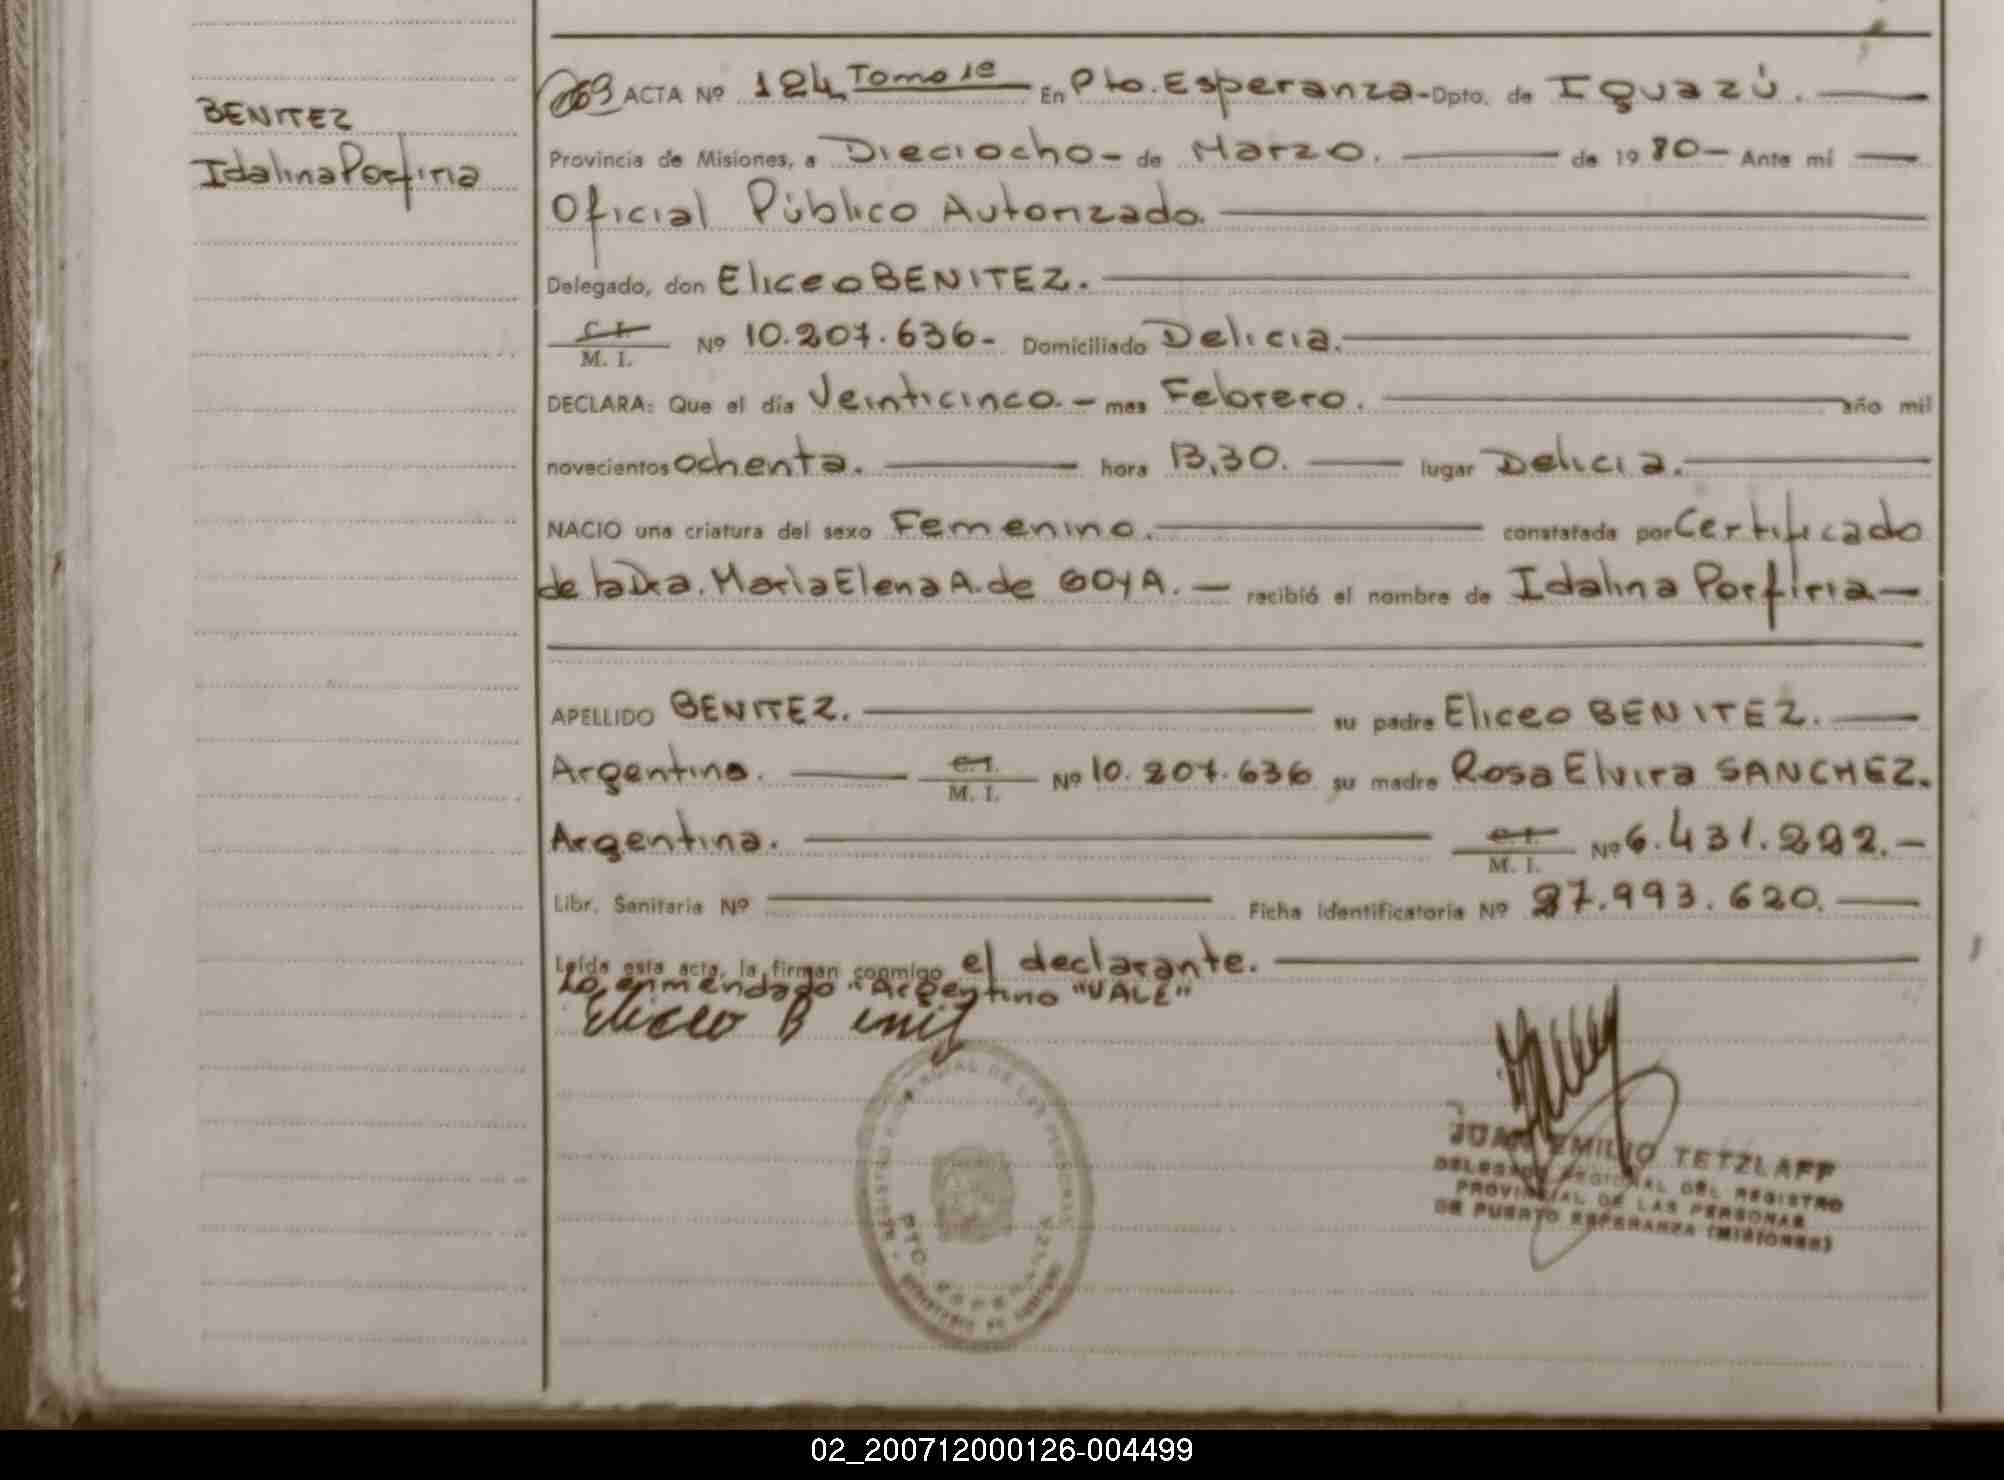 BENITEZ
Idalina Porfiria
069 ACTA Nº 124 Tomo 1º En Pto. Esperanza - Dpto. de Iguazú.
Provincia de Misiones, a Dieciocho - de Marzo. de 1980 - Ante mí
Oficial Público Autorizado.
Delegado, don Eliceo BENITEZ.
C. I.
M. I. Nº 10.207.636 - Domiciliado Delicia.
DECLARA: Que el día Veinticinco. - mes Febrero. año mil
novecientos ochenta. hora 13,30. lugar Delicia.
NACIO una criatura del sexo Femenino. constatada por Certificado
de la Dra. María Elena A. de GOYA. - recibió el nombre de Idalina Porfiria -
APELLIDO BENITEZ. su padre Eliceo BENITEZ.
Argentino. C. I. M. I. Nº 10.207.636 su madre Rosa Elvira SANCHEZ.
Argentina. C. I. M. I. Nº 6.431.292. -
Libr. Sanitaria Nº Ficha identificatoria Nº 27.993.620.
Leída esta acta, la firman conmigo el declarante.
Lo enmendado "Argentino "VALE"
Eliceo B enit
REGISTRO PROVINCIAL DE LAS PERSONAS
PTO. ESPERANZA
JUAN EMILIO TETZLAFF
DELEGADO REGIONAL DEL REGISTRO
PROVINCIAL DE LAS PERSONAS
DE PUERTO ESPERANZA (MISIONES)
02_200712000126-004499